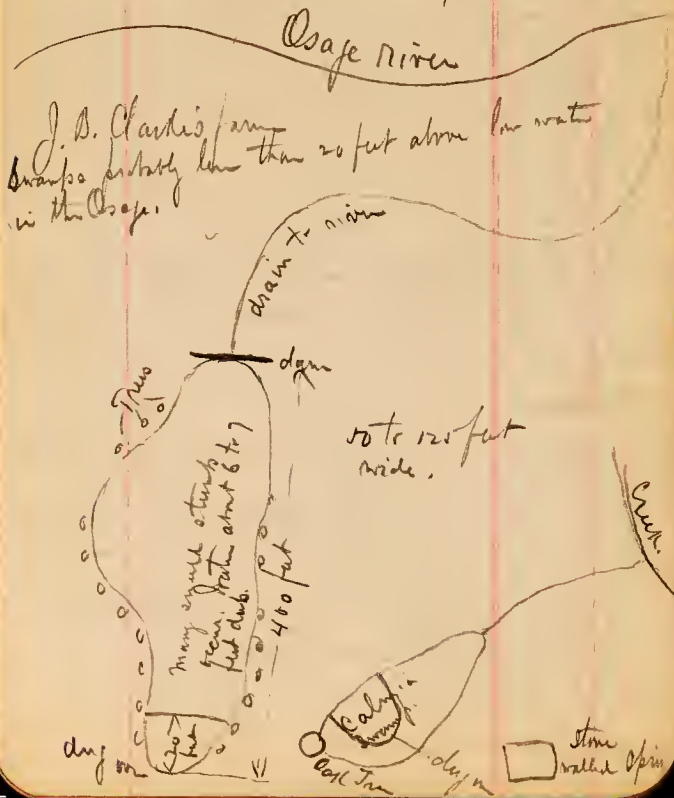 Osage river
J. B. Clardis farm
Swamps probably less than 20 feet above low water
in the Osage.
drain to river
dam
Trees
50 to 125 feet
wide.
many stumps
occur. Water about 6 to 7
feet
400 feet
Creek.
20
feet
dug
Oak Tree
dug
Stone
walled Spring